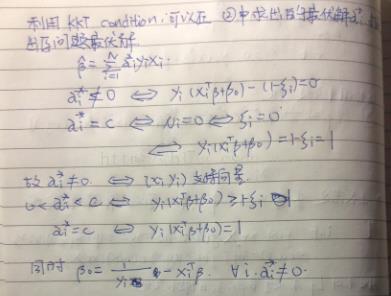 利用 KKT condition,可以在 ②中求出
出原问题最优解
β̂ = Σᵢ₌₁ᴺ αᵢ* yᵢxᵢ.
αᵢ* ≠ 0 ⟺ yᵢ(xᵢᵀβ+β₀)-(1-ξᵢ)=0
αᵢ* = c ⟺ μᵢ=0 ⟺ ξᵢ=0
⟺ yᵢ(xᵢᵀβ+β₀)=1-ξᵢ=1
故 αᵢ*≠0. ⟺ (xᵢ,yᵢ) 支持向量.
0<αᵢ*<c ⟺ yᵢ(xᵢᵀβ+β₀)>1-ξᵢ
αᵢ*=c ⟺ yᵢ(xᵢᵀβ+β₀)=1
同时 β₀= 1/yᵢ - xᵢᵀβ. ∀i. αᵢ*≠0.